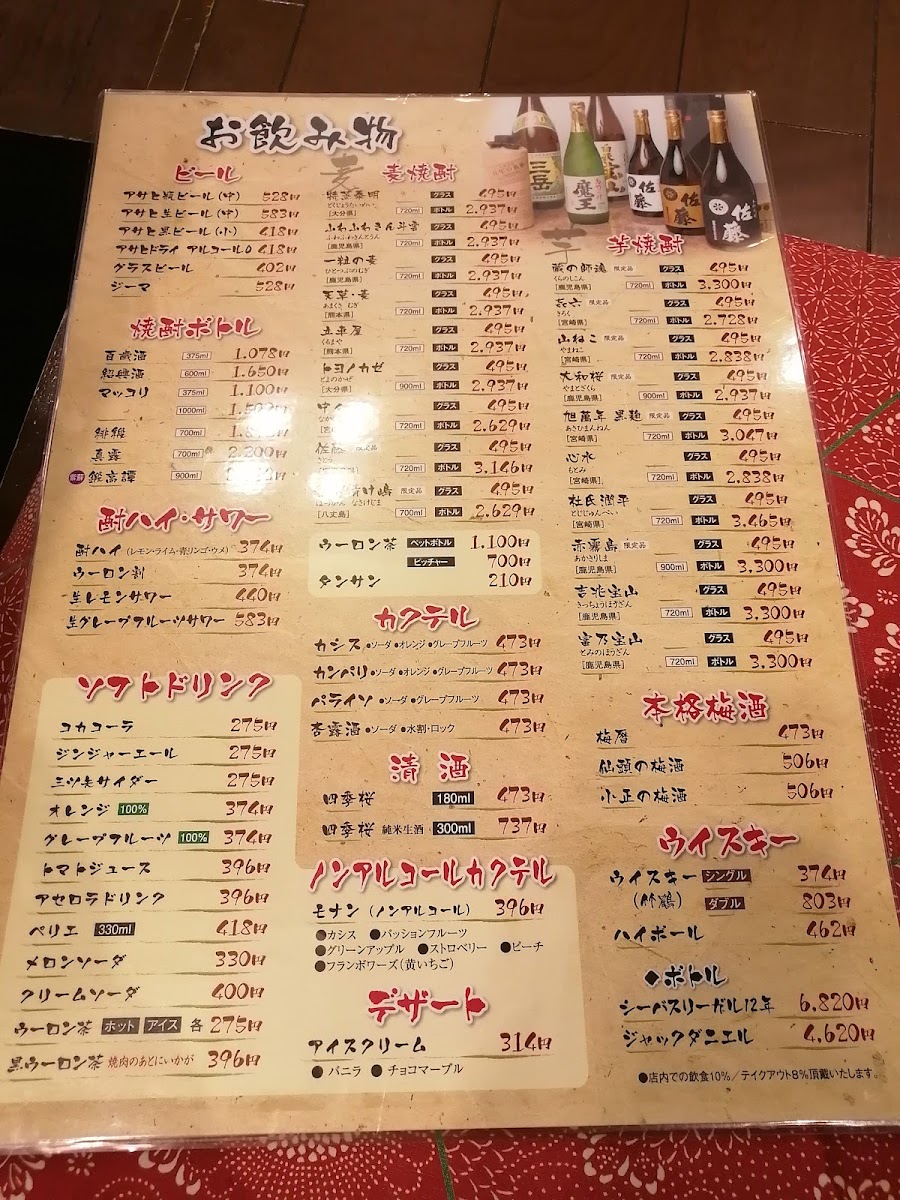 お飲み物
ビール
アサヒ瓶ビール(中) 528円
アサヒ生ビール(中) 583円
アサヒ黒ビール(小) 418円
アサヒドライ アルコール0 418円
グラスビール 402円
ジーマ 528円
焼酎ボトル
百歳酒 375ml 1.078円
紹興酒 600ml 1.650円
マッコリ 375ml 1.100円
1000ml
緋緞 700ml
真露 700ml 2.200円
鍛高譚 900ml
酎ハイ・サワー
酎ハイ(レモン・ライム・青リンゴ・ウメ) 374円
ウーロン割 374円
生レモンサワー 440円
生グレープフルーツサワー 583円
ソフトドリンク
コカコーラ 275円
ジンジャーエール 275円
三ツ矢サイダー 275円
オレンジ 100% 374円
グレープフルーツ 100% 374円
トマトジュース 396円
アセロラドリンク 396円
ペリエ 330ml 418円
メロンソーダ 330円
クリームソーダ 400円
ウーロン茶 ホット アイス 各 275円
黒ウーロン茶 焼肉のあとにいかが 396円
麦
麦焼酎
特蒸泰明 グラス 495円
とくじょうたいめい
[大分県] 720ml ボトル 2.937円
ふわふわきん斗雲 グラス 495円
ふわふわきんとうん
[鹿児島県] 720ml ボトル 2.937円
一粒の麦 グラス 495円
ひとつぶのむぎ
[鹿児島県] 720ml ボトル 2.937円
天草・麦 グラス 495円
あまくさ むぎ
[熊本県] 720ml ボトル 2.937円
グラス 495円
くるまや
[熊本県] 720ml ボトル 2.937円
トヨノカゼ グラス 495円
とよのかぜ
[大分県] 900ml ボトル 2.937円
グラス 495円
720ml ボトル 2.629円
佐藤 グラス 495円
さとう
720ml ボトル 3.146円
限定品 グラス 495円
[八丈島] 700ml ボトル 2.629円
ウーロン茶 ペットボトル 1.100円
ピッチャー 700円
タンサン 210円
カクテル
カシス ●ソーダ ●オレンジ ●グレープフルーツ 473円
カンパリ ●ソーダ ●オレンジ ●グレープフルーツ 473円
パライソ ●ソーダ ●グレープフルーツ 473円
杏露酒 ●ソーダ ●水割・ロック 473円
清酒
四季桜 180ml 473円
四季桜 純米生酒 300ml 737円
ノンアルコールカクテル
モナン (ノンアルコール) 396円
●カシス ●パッションフルーツ
●グリーンアップル ●ストロベリー ●ピーチ
●フランボワーズ(黄いちご)
デザート
アイスクリーム 314円
● バニラ ● チョコマーブル
三岳
魔王
佐藤
佐藤
佐藤
芋
芋焼酎
蔵の師魂 限定品 グラス 495円
くらのしこん
[鹿児島県] 720ml ボトル 3.300円
㐂六 限定品 グラス 495円
きろく
[宮崎県] 720ml ボトル 2.728円
山ねこ 限定品 グラス 495円
やまねこ
[宮崎県] 720ml ボトル 2.838円
大和桜 限定品 グラス 495円
やまとざくら
[鹿児島県] 900ml ボトル 2.937円
旭萬年 黒麹 限定品 グラス 495円
あさひまんねん
[宮崎県] 720ml ボトル 3.047円
心水 グラス 495円
もとみ
[宮崎県] 720ml ボトル 2.838円
杜氏潤平 グラス 495円
とじじゅんぺい
[宮崎県] 720ml ボトル 3.465円
赤霧島 限定品 グラス 495円
あかきりしま
[鹿児島県] 900ml ボトル 3.300円
吉兆宝山 グラス 495円
きっちょうほうざん
[鹿児島県] 720ml ボトル 3.300円
富乃宝山 グラス 495円
とみのほうざん
[鹿児島県] 720ml ボトル 3.300円
本格梅酒
梅暦 473円
仙頭の梅酒 506円
小正の梅酒 506円
ウイスキー
ウイスキー シングル 374円
(竹鶴) ダブル 803円
ハイボール 462円
◆ボトル
シーバスリーガル12年 6.820円
ジャックダニエル 4.620円
●店内での飲食10%/テイクアウト8%頂戴いたします。